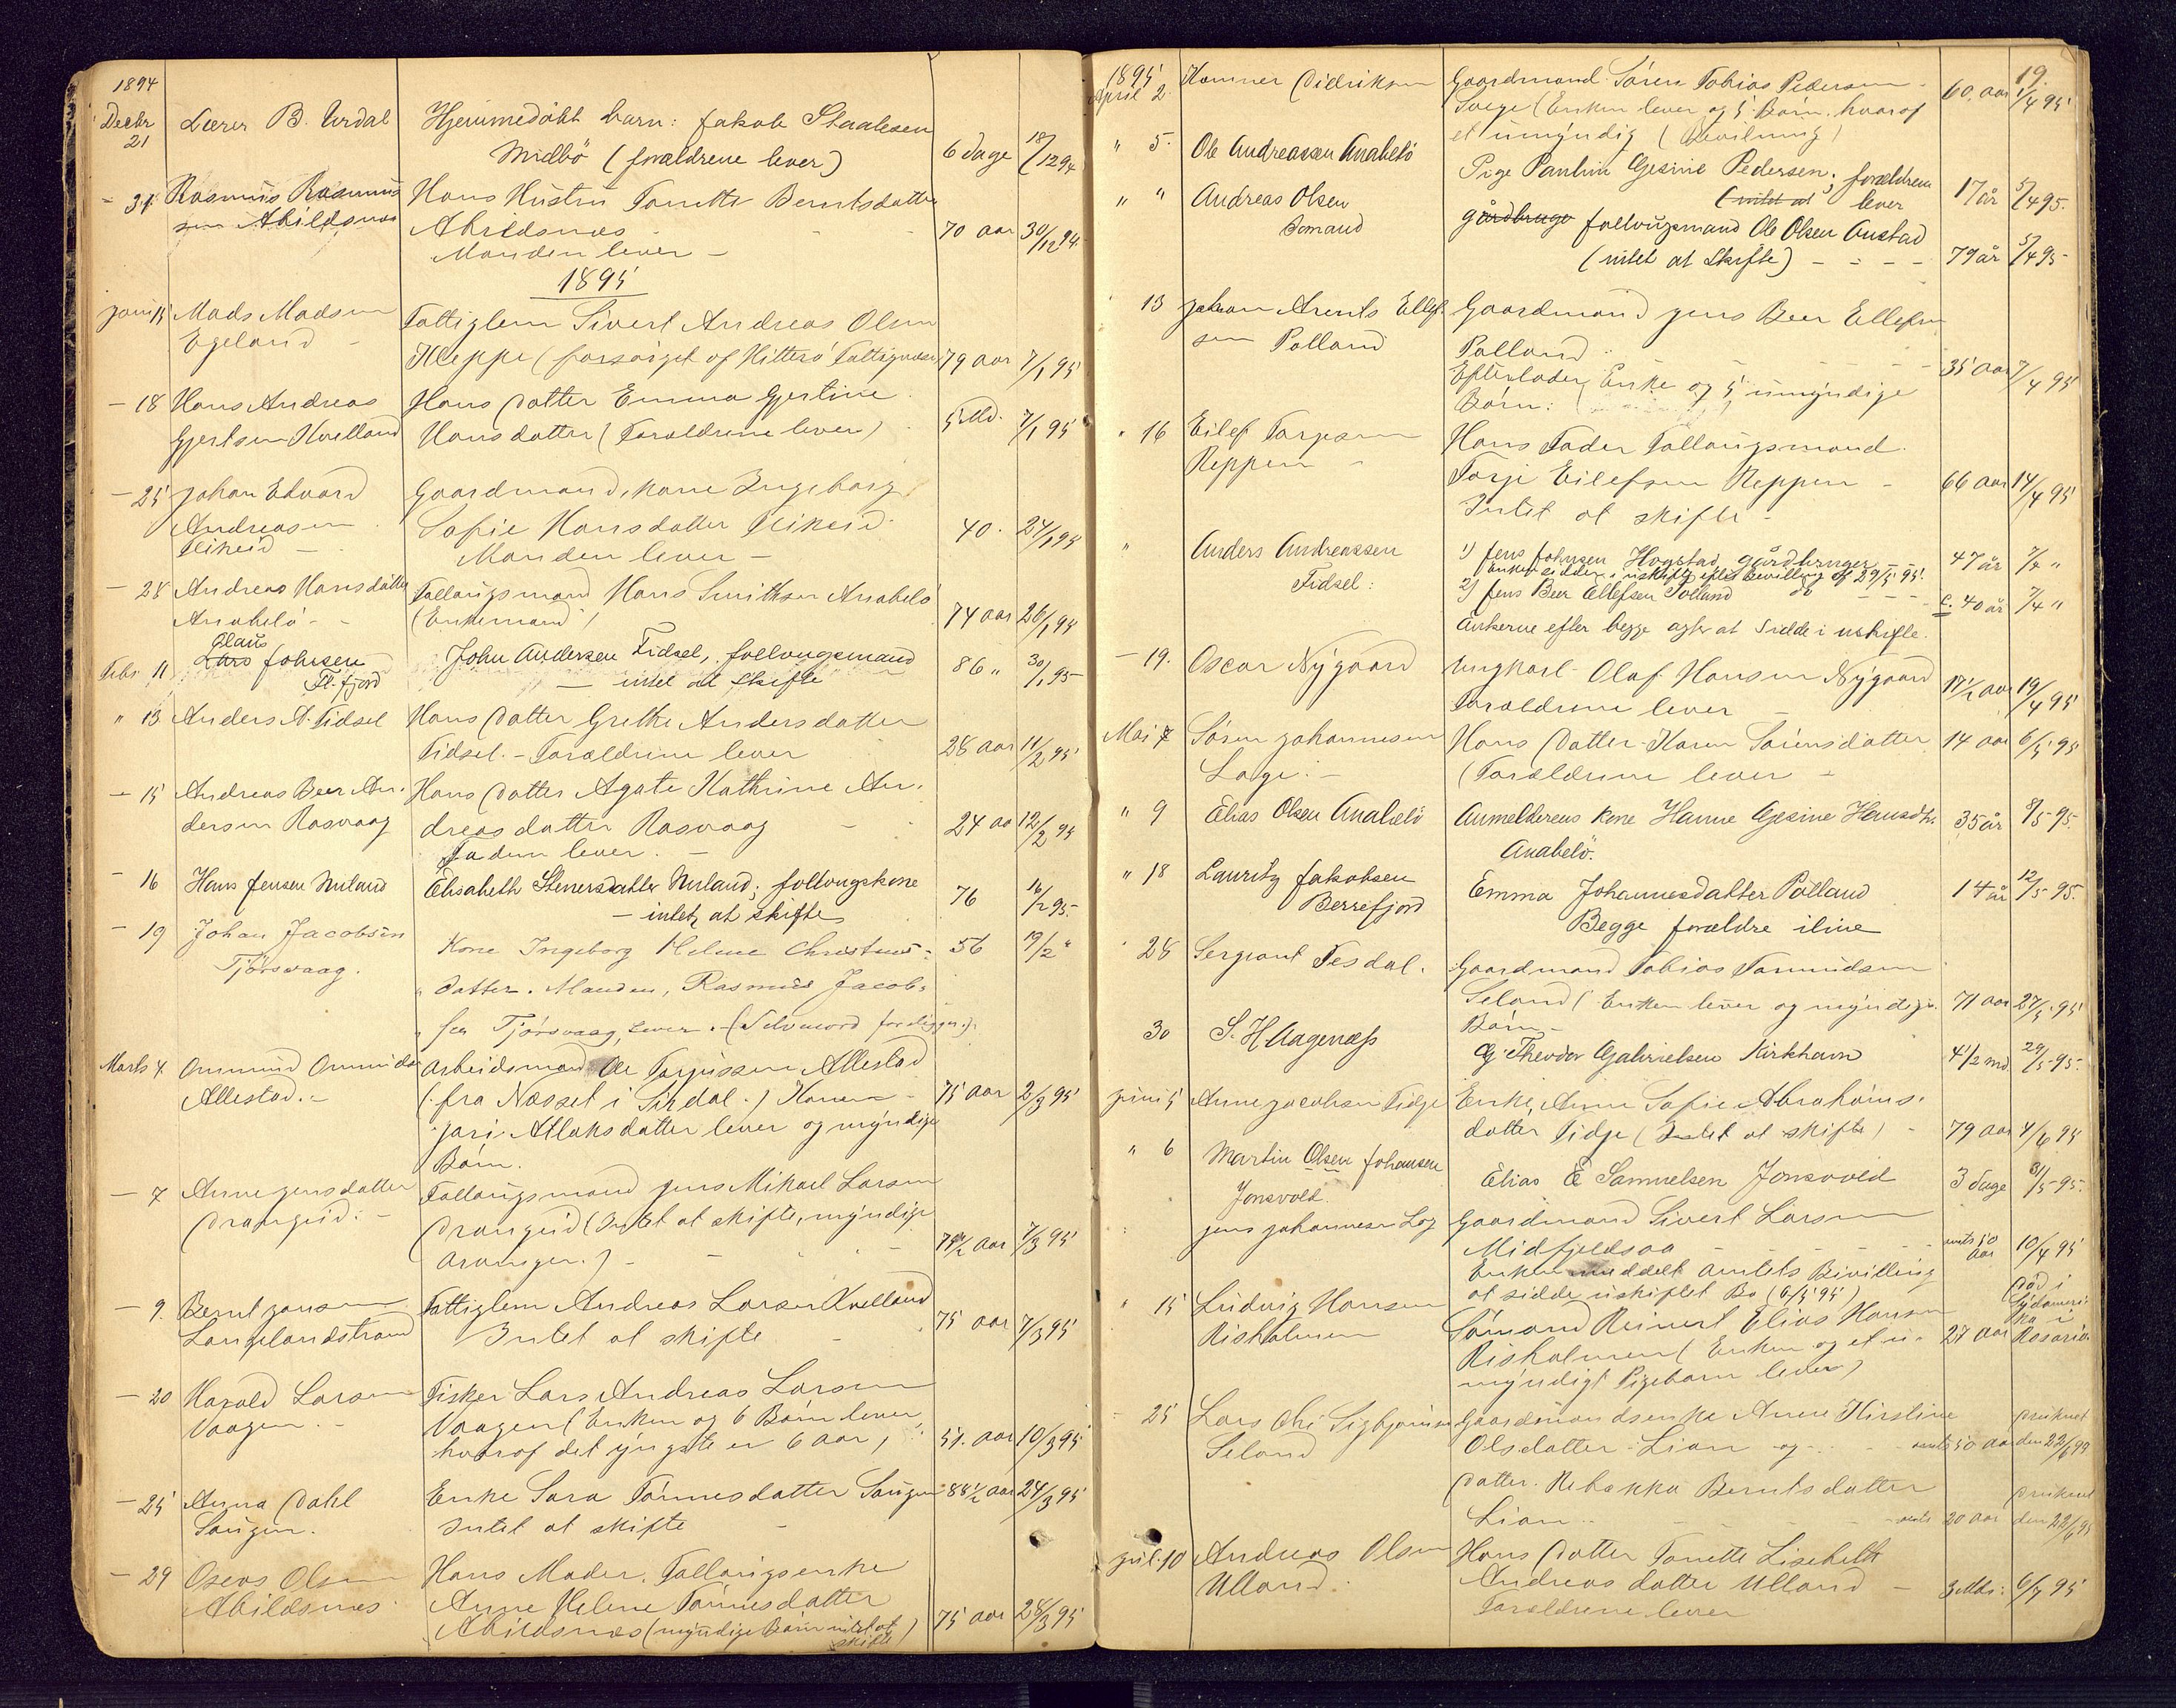 1894
Decbr 21 Lærer B. Urdal Hjemmedøbt barn: Jakob Staalesen
Midbö (forældrene lever) 6 dage 18/12 94
- 31 Rasmus Rasmus Hans Hustru Tonette Berntsdatter
sen Abildsnes Abildsnes - 70 aar 30/12 94
Manden lever -
1895
Jani 15 Mads Madsen Fattiglem Sivert Andreas Olsen
Egeland - Kleppe (forsørget af Hitterö Fattigvæsen 79 aar 7/1 95
- 18 Hans Andreas Hans Datter Emma Gjertine
Gjertsen Kvelland Hansdatter (Foraldrene lever) 5 Md. 7/1 95
- 25 Johan Edvard Gaardmandskone Ingeborg
Andreasen Sofie Hansdatter Fikeid 40. 24/1 95
Fikeid - Manden lever -
- 28 Andreas Hansdatter Follaugsmand Hans Smithsen Anabelö
Anabelö - - (Enkemand) 74 aar 26/1 95
Olaus
Febr 11 Lars Johnsen John Andersen Fidsel, follougsmand 86 " 30/1 95
Fl.fjord - intet at skifte
" 13 Anders A. Fidsel Hans Datter Grethe Andersdatter
Fidsel. - Foraeldrene lever 28 aar 11/2 95
- 15 Andreas Beer An- Hans Datter Agate Kathrine An-
dersen Rasvaag dreasdatter Rasvaag - 24 aa 12/2 95
Faderen lever. -
- 16 Hans Jensen Nuland Elisabeth Stenersdatter Nuland; follougskone 76 16/2 95.
- intet at skifte
- 19 Johan Jacobsen Kone Ingeborg Helene Christens- 56 19/2 "
Tjörsvaag. datter. Manden, Rasmus Jacob-
sen Tjörsvaag, Lever. - (Selvmord foreligger.).
Marts 4 Ommund Ommunds Arbeidsmand Ole Torjussen Allestad
Allestad. - (fra Næsset i Sirdal.) Konen - 75 aar 2/3 95
Jari Atlaksdatter lever og myndige
Börn.
- 7 Anne Jensdatter Follougsmand Jens Mikael Larsen
Drangeid. - Drangeid (Intet at skifte, myndige 79 1/2 aar 7/3 95
Arvinger.) -
- 9. Bernt Jansen Fattiglem Andreas Larsen Kvelland
Langelandstrand Intet at skifte - 75 aar 7/3 95
- 20 Harald Larsen Fisker Lars Andreas Larsen
Vaagen. - Vaagen (Enken og 6 Börn lever
hvoraf det yngste er 6 aar) 51. aar 10/3 95
- 25 Anna Dahl Enke Sara Tönnesdatter Saugen 88 1/2 aar 24/3 95
Saugen. Intet at skifte -
- 29 Oseas Olsen Hans Moder. Follaugsenke
Abildsnes. Anne Helene Tönnesdatter 75 aar 28/3 95
Abildsnes (myndige Börn intet at
skifte)
19.
1895
April 2. Komner Didriksen Gaardmand Sören Tobias Pedersen - 60. aar 1/4 95
Svege (Enken lever og 5 Börn. hvoraf
et umyndig (Bevilning)
" 5. Ole Andreassen Anabelö Pige Pauline Gesine Pedersen; forældrene 17 år 5/4 95.
(intet at lever
" " Andreas Olsen gårdbruge follougsmand Ole Olsen Austad
Sømand (intet at Skifte) - - - - 79 år 5/4 95-
13 Johan Arents Ellef- Gaardmand Jens Beer Ellefsen
sen Polland Polland : 35 aar 7/4 95
Efterlader Enke og 5 umyndige
Börn:
" 16 Eilef Torjesen Hans Fader Follaugsmand.
Reppen - Torje Eilefsen Reppen - 66 aar 14/4 95
Intet at skifte -
" Anders Andreassen 1) Jens Johnsen Hogstad, gårdbruger - - 47 år 7/4 "
Fidsel: Enken sidder i uskiftet efter bevilling af 29/5 95.
2) Jens Beer Ellefsen Polland do - - - c. 40 år 7/4 "
Enkerne efter begge agter at sidde i uskifte.
- 19. Oscar Nygaard Ungkarl Olaf Hansen Nygaard 17 1/2 aar 19/4 95
Foraldrene lever -
Mai 7 Sören Johannesen Hans Datter Karen Sörensdatter 14 aar 6/5 95
Lage. - (Foraldrene lever -
" 9 Elias Olsen Anabelö Anmelderens kone Hanne Gesine Hansdtr. 35 år 8/5 95.
Anabelö.
" 18 Lauritz Jakobsen Emma Johannesdatter Polland 14 år 12/5 95.
Berrefjord Begge forældre ilive
" 28 Sergeant Fesdal. Gaardmand Tobias Tarmundsen
Seland (Enken lever og myndige 71 aar 27/5 95
Börn -
30 S. H Aagenæss G. Theodor Gabrielsen Kirkhavn 4 1/2 md 29/5 95.
Juni 5 Anne Jacobsen Fidje Enke, Anne Sofie Abrahams-
datter Fidje (Intet at skifte) - 79 aar 4/6 95
" 6 Martin Olsen Johansen Elias E Samuelsen Jonsvold 3 dage 31/5 95.
Jonsvold.
Jens Johannesen Log Gaardmand Sivert Larsen
Midfjeldsaa - - - omts 50 aar 10/4 95
Enken meddelt Amtets Bivilling
at sidde uskiftet Bo (6/5 95)
" 15 Ludvig Hansen Sömand Reinert Elias Hansen
Risholmen Risholmen (Enken og et u- 27 aar Död i Sydameri- ka i Rosario.
myndigt Pigebarn lever)
- 25 Lars Chr Sigbjørnsen Gaardmandsenke Anne Kirstine
Seland Olsdatter Lian - og - omts 50 aar Druknet den 22/6 95
Datter. Rebekka Berntsdatter
Lian - - - omts 20 aar Druknet den 22/6 95
Juli 10 Andreas Olsen Hans Datter Tonette Lisebeth
Ulland. Andreasdatter Ulland - 3 Mdr. 6/7 95
Foraldrene lever